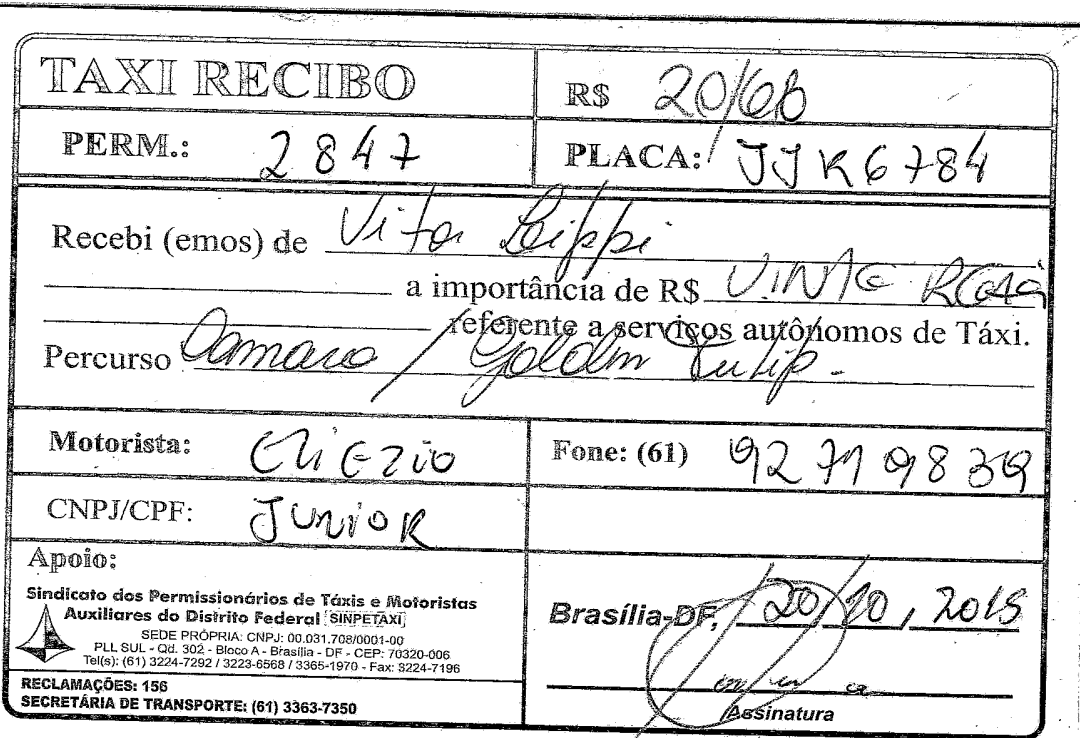 TAXI RECIBO
R$ 20/00
PERM.: 2847
PLACA: JJK6784
Recebi (emos) de Vitor Lippi
a importância de R$ VINTE REAI
referente a serviços autônomos de Táxi.
Percurso Camara / Golden Tulip.
Motorista: Eliezio
Fone: (61) 92719839
CNPJ/CPF: JUNIOR
Apoio:
Sindicato dos Permissionários de Táxis e Motoristas
Auxiliares do Distrito Federal SINPETAXI
SEDE PRÓPRIA: CNPJ: 00.031.708/0001-00
PLL SUL - Qd. 302 - Bloco A - Brasília - DF - CEP: 70320-006
Tel(s): (61) 3224-7292 / 3223-6568 / 3365-1970 - Fax: 3224-7196
RECLAMAÇÕES: 156
SECRETÁRIA DE TRANSPORTE: (61) 3363-7350
Brasília-DF, 20/10, 2015
Assinatura